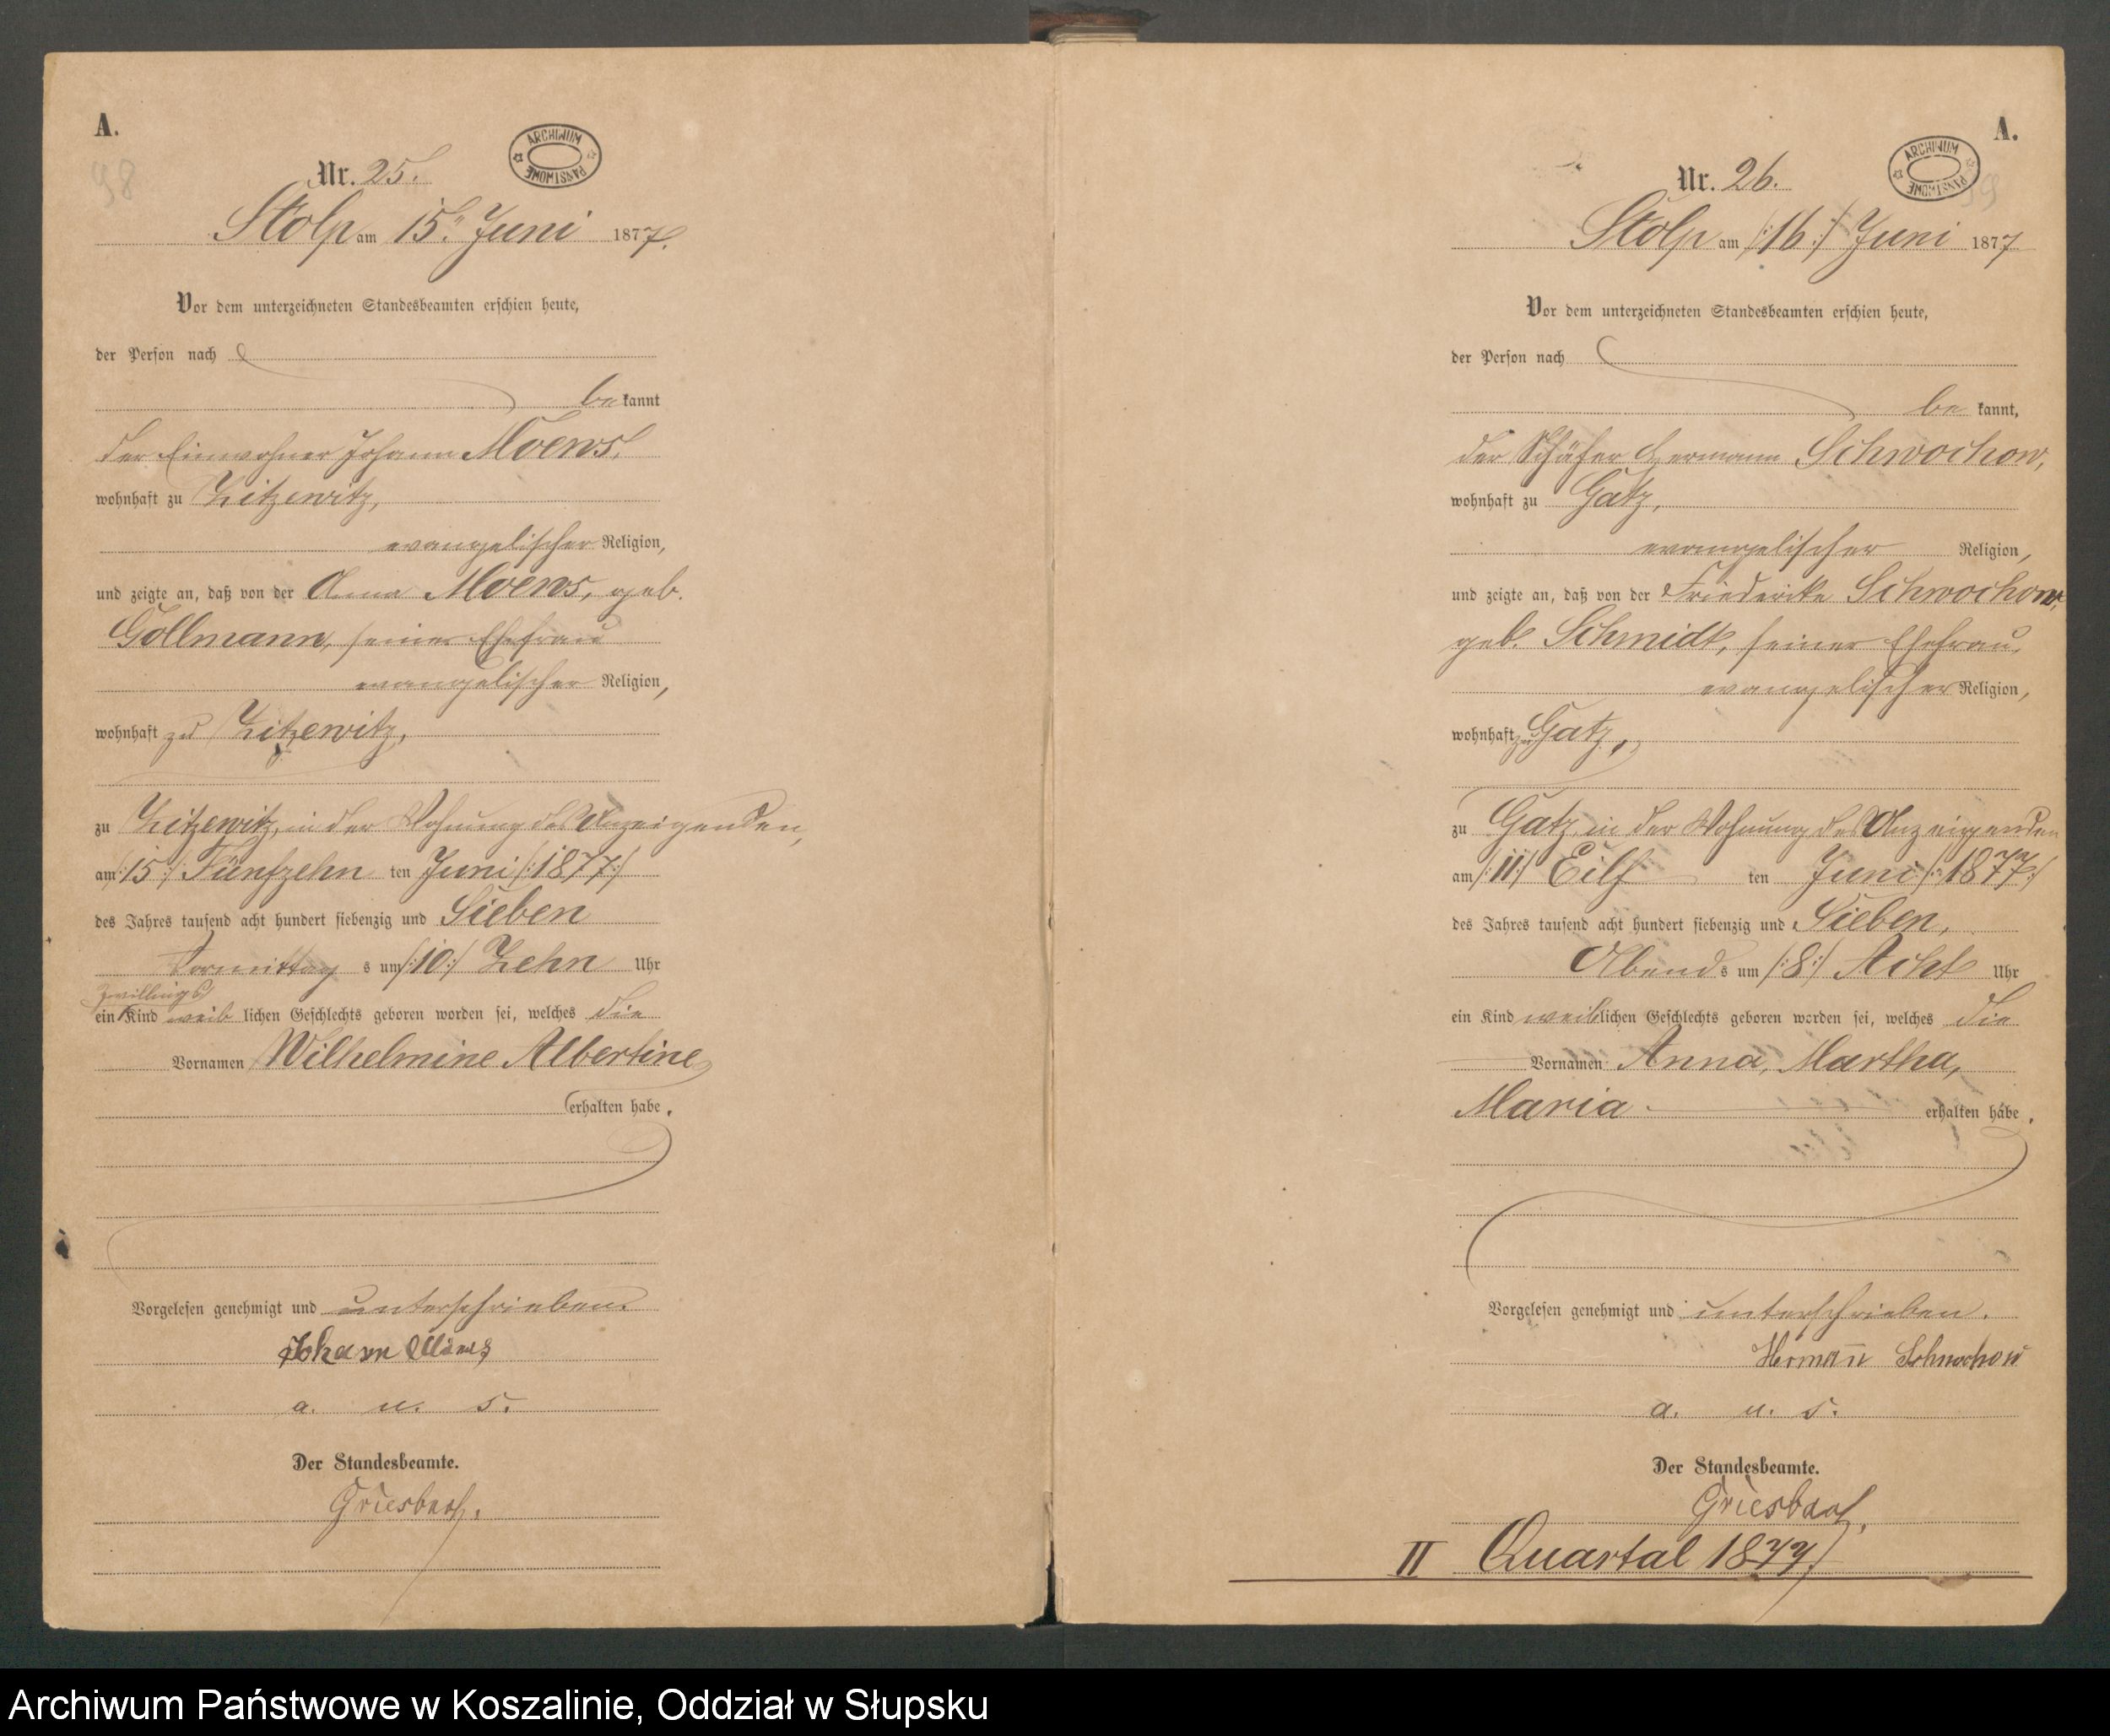 A.
98
Nr. 25.
ARCHIWUM PAŃSTWOWE
Stolp am 15. Juni 1877.
Vor dem unterzeichneten Standesbeamten erschien heute,
der Person nach
bekannt
der Einwohner Johann Moews,
wohnhaft zu Zitzewitz,
evangelischer Religion,
und zeigte an, daß von der Anna Moews, geb.
Gollmann, seiner Ehefrau
evangelischer Religion,
wohnhaft zu Zitzewitz,
zu Zitzewitz, in der Wohnung des Anzeigenden,
am /:15:/ Fünfzehn ten Juni /:1877:/
des Jahres tausend acht hundert siebenzig und Sieben
Vormittag s um /:10:/ Zehn Uhr
Zwillings
ein Kind weiblichen Geschlechts geboren worden sei, welches die
Vornamen Wilhelmine Albertine
erhalten habe.
Vorgelesen genehmigt und unterschrieben.
Johann Möws
a. u. s.
Der Standesbeamte.
Griesbach.
A.
99
Nr. 26.
ARCHIWUM PAŃSTWOWE
Stolp am /:16:/ Juni 1877
Vor dem unterzeichneten Standesbeamten erschien heute,
der Person nach
be kannt,
der Schäfer Hermann Schwochow,
wohnhaft zu Gatz,
evangelischer Religion,
und zeigte an, daß von der Friederike Schwochow,
geb. Schmidt, seiner Ehefrau,
evangelischer Religion,
wohnhaft zu Gatz,
zu Gatz in der Wohnung des Anzeigenden
am /:11:/ Eilf ten Juni /:1877:/
des Jahres tausend acht hundert siebenzig und Sieben,
Abends um /:8:/ Acht Uhr
ein Kind weiblichen Geschlechts geboren worden sei, welches die
Vornamen Anna, Martha,
Maria erhalten habe.
Vorgelesen genehmigt und unterschrieben.
Hermañ Schwochow
a. u. s.
Der Standesbeamte.
Griesbach.
II Quartal 1877
Archiwum Państwowe w Koszalinie, Oddział w Słupsku